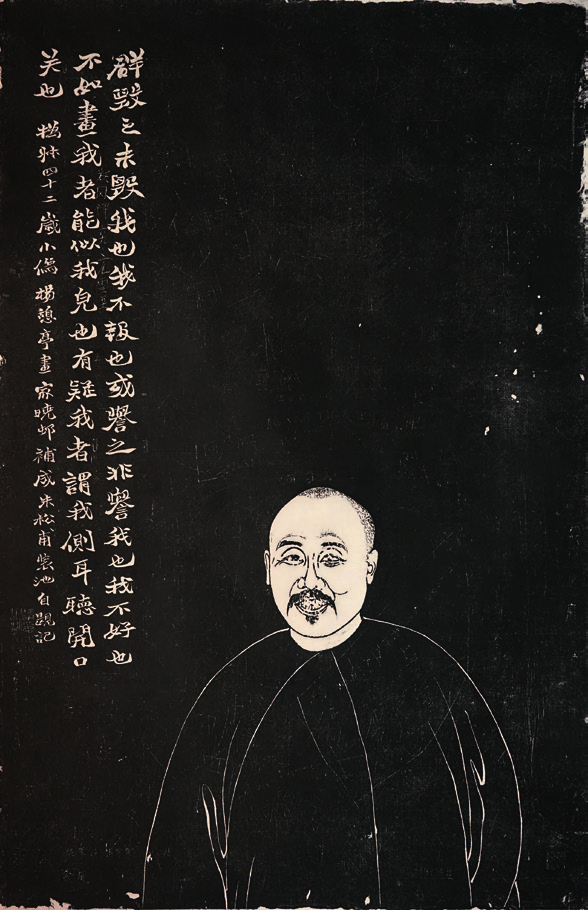 群毀之未毀我也我不報也或譽之非譽我也我不好也
不如畫我者能似我皃也有疑我者謂我側耳聽開口
笑也 蝯叔四十二歲小像楊憩亭畫 宗曉邨補成朱松甫裝池自題記